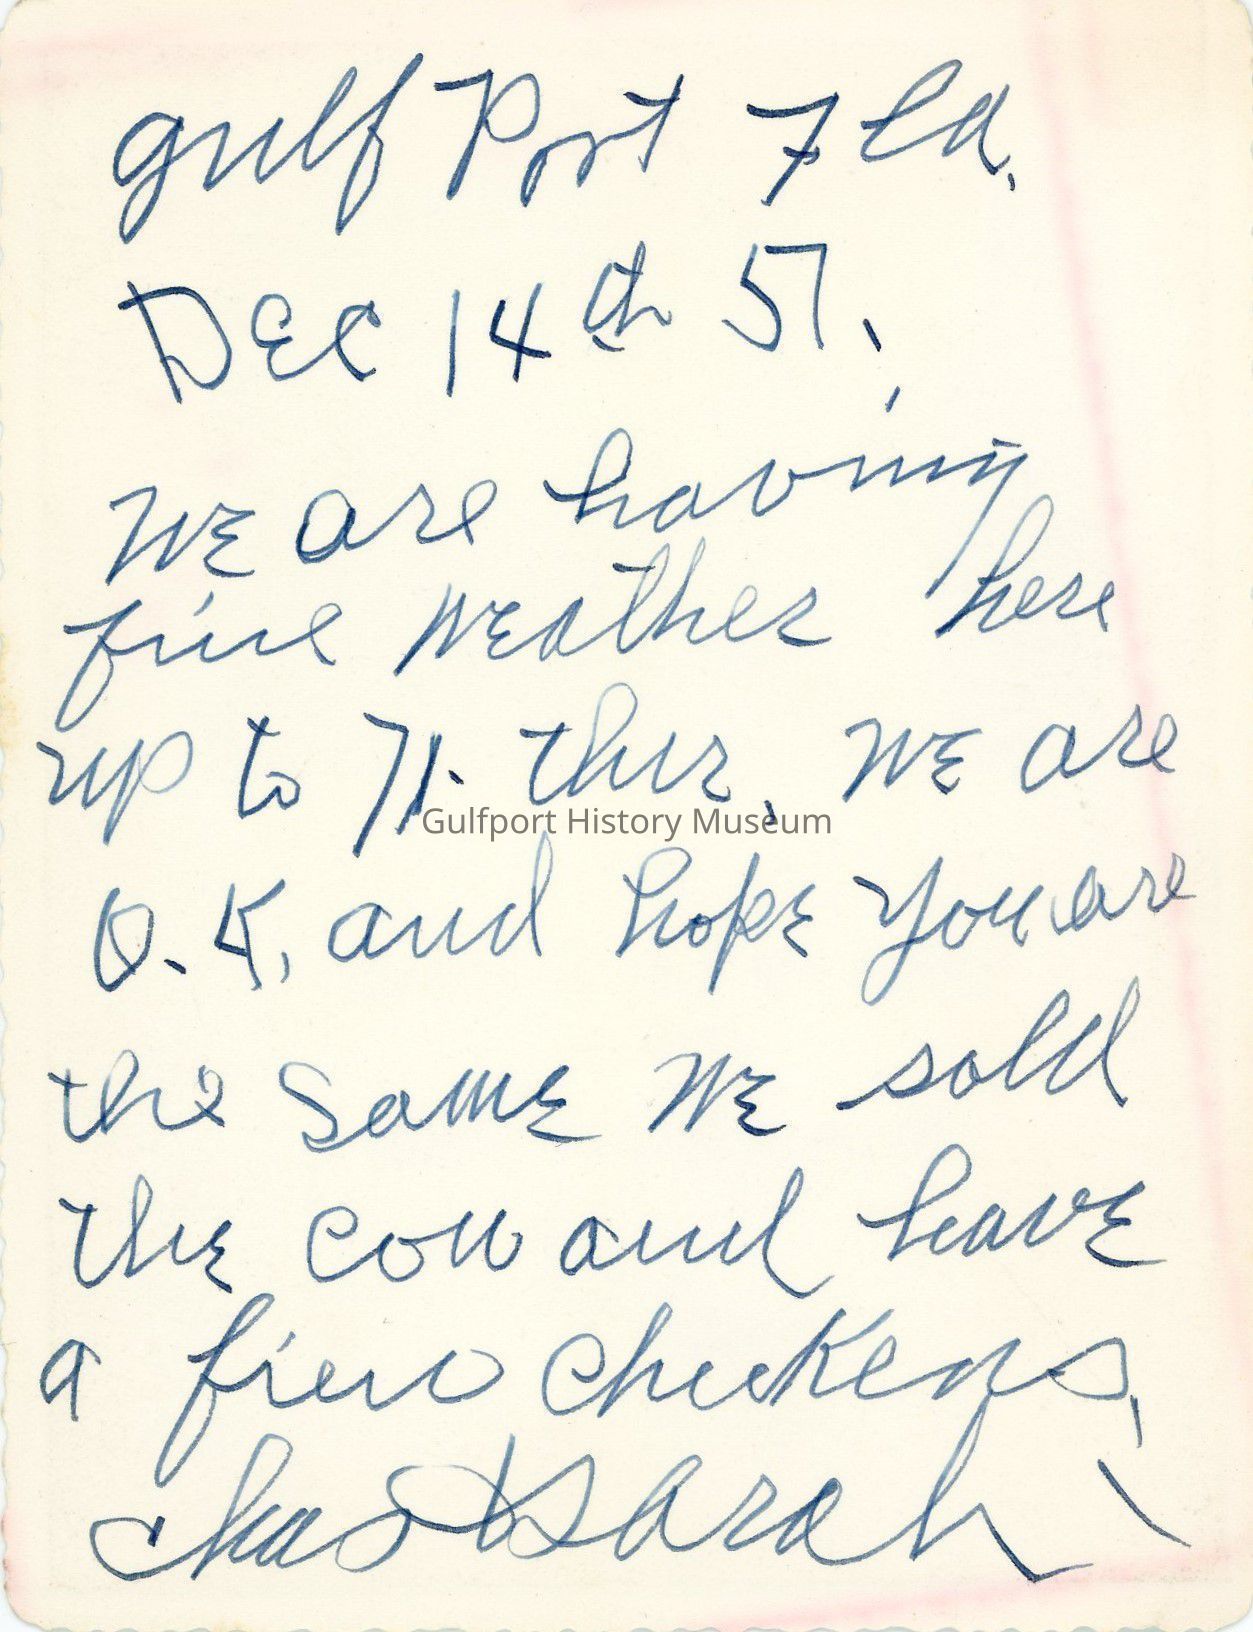 Gulf Port Fla.
Dec 14th 57.
We are having
fine weather here
up to 71. ther. We are
O.K. and hope you are
the same We sold
the cow and have
a fiew chickens,
Chas & Sarah
Gulfport History Museum